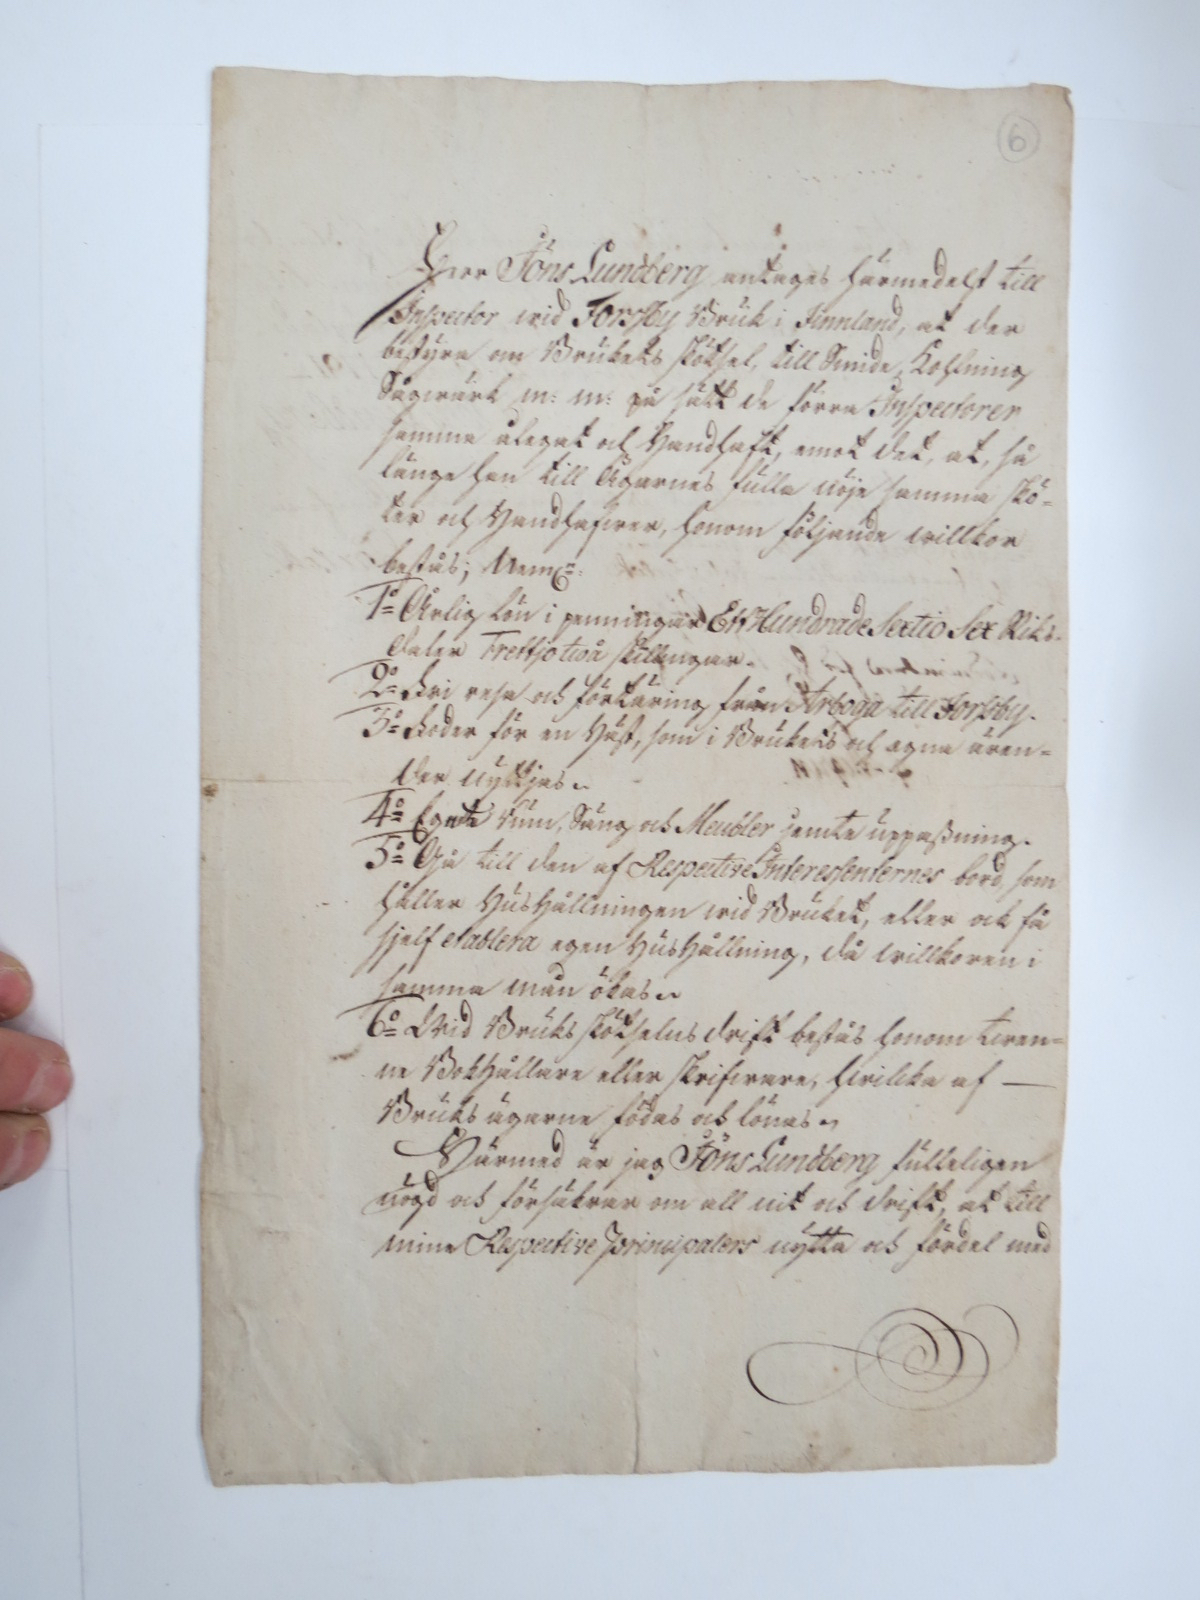 6
Herr Jöns Lundberg antages härmedelst till
Inspector wid Forsby Bruk i Finnland, at der
bestyra om Brukets skötsel, till Smide, Kohlning
Sågwärk m: m: på sätt de förra Inspectorer
samma ålegat och Handhaft, emot det, at, så
länge han till Ägarnes fulla nöje samma skö=
ter och Handhafwer, honom följande willkor
bestås; Neml:
1o Årlig Lön i penningar Ett Hundrade Sextio Sex Riks-
daler Trettjotwå skillingar.
2o Fri resa och förtäring från Arboga till Forsby.
3o Foder för en Häst, som i Brukets och egna ären=
der nyttjas.
4o Egnte Rum, Säng och Meubler jemte uppassning.
5o Gå till den af Respective Interessenternes bord, som
håller Hushållningen wid Bruket, eller ock få
sjelf etablera egen Hushållning, då willkoren i
samma mån ökas.
6o Wid Bruks skötselns drift bestås honom twen=
ne Bokhållare eller skrifware, hwilcka af —
Bruks ägarne födas och lönas.
Härmed är jag Jöns Lundberg fulleligen
nögd och försäkrar om all nit och drift, at till
mine Respective principalers nytta och fördel med